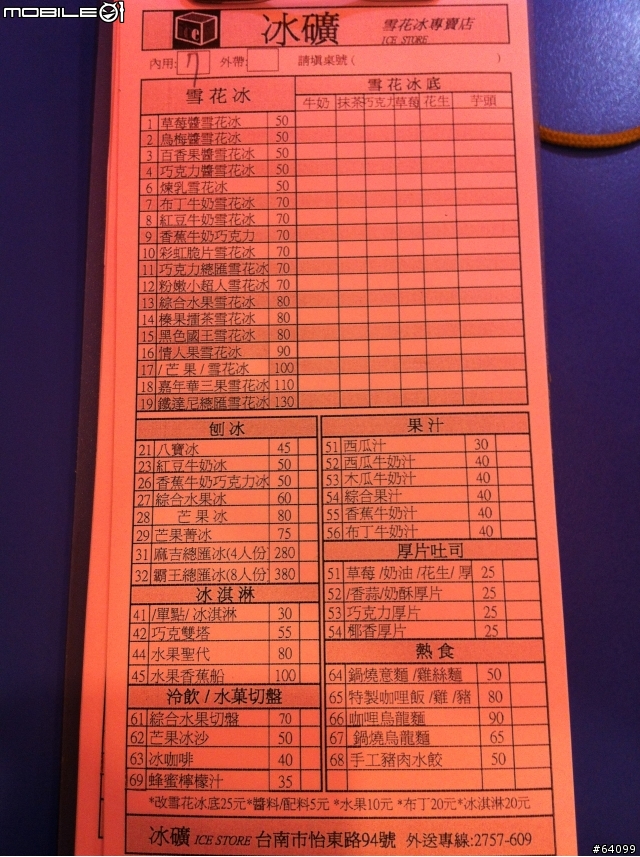 MOBILE01
冰礦 雪花冰專賣店
ICE STORE
內用: 7 外帶: 請填桌號( )
雪花冰 雪花冰底
牛奶 抹茶 巧克力 草莓 花生 芋頭
1 草莓醬雪花冰 50
2 烏梅醬雪花冰 50
3 百香果醬雪花冰 50
4 巧克力醬雪花冰 50
6 煉乳雪花冰 50
7 布丁牛奶雪花冰 70
8 紅豆牛奶雪花冰 70
9 香蕉牛奶巧克力 70
10 彩虹脆片雪花冰 70
11 巧克力總匯雪花冰 70
12 粉嫩小超人雪花冰 70
13 綜合水果雪花冰 80
14 榛果擂茶雪花冰 80
15 黑色國王雪花冰 80
16 情人果雪花冰 90
17 /芒果/雪花冰 100
18 嘉年華三果雪花冰 110
19 鐵達尼總匯雪花冰 130
刨冰
21 八寶冰 45
23 紅豆牛奶冰 50
26 香蕉牛奶巧克力冰 50
27 綜合水果冰 60
28 芒果冰 80
29 芒果菁冰 75
31 麻吉總匯冰(4人份) 280
32 霸王總匯冰(8人份) 380
冰淇淋
41 /單點/冰淇淋 30
42 巧克雙塔 55
44 水果聖代 80
45 水果香蕉船 100
冷飲/水菓切盤
61 綜合水果切盤 70
62 芒果冰沙 50
63 冰咖啡 40
69 蜂蜜檸檬汁 35
果汁
51 西瓜汁 30
52 西瓜牛奶汁 40
53 木瓜牛奶汁 40
54 綜合果汁 40
55 香蕉牛奶汁 40
56 布丁牛奶汁 40
厚片吐司
51 草莓/奶油/花生/厚 25
52 /香蒜/奶酥厚片 25
53 巧克力厚片 25
54 椰香厚片 25
熱食
64 鍋燒意麵/雞絲麵 50
65 特製咖哩飯/雞/豬 80
66 咖哩烏龍麵 90
67 鍋燒烏龍麵 65
68 手工豬肉水餃 50
*改雪花冰底25元*醬料/配料5元*水果10元*布丁20元*冰淇淋20元
冰礦 ICE STORE 台南市怡東路94號 外送專線:2757-609
#64099